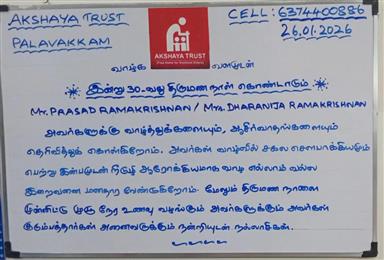 AKSHAYA TRUST
PALAVAKKAM
CELL: 6374400886
26.01.2026
AKSHAYA TRUST
(Free Home for Destitute Elders)
வாழ்க வளமுடன்
இன்று 30-வது திருமண நாள் கொண்டாடும்
Mr. PRASAD RAMAKRISHNAN / Mrs. DHARANIJA RAMAKRISHNAN
அவர்களுக்கு வாழ்த்துக்களையும், ஆசிர்வாதங்களையும்
தெரிவித்துக் கொள்கிறோம். அவர்கள் வாழ்வில் சகல சௌபாக்கியமும்
பெற்று இன்பமுடன் நீடூழி ஆரோக்கியமாக வாழ எல்லாம் வல்ல
இறைவனை மனதார வேண்டுகிறோம். மேலும் திருமண நாளை
முன்னிட்டு முழு நேர உணவு வழங்கும் அவர்களுக்கும் அவர்கள்
குடும்பத்தார்கள் அனைவருக்கும் நன்றியுடன் நல்லாசிகள்.